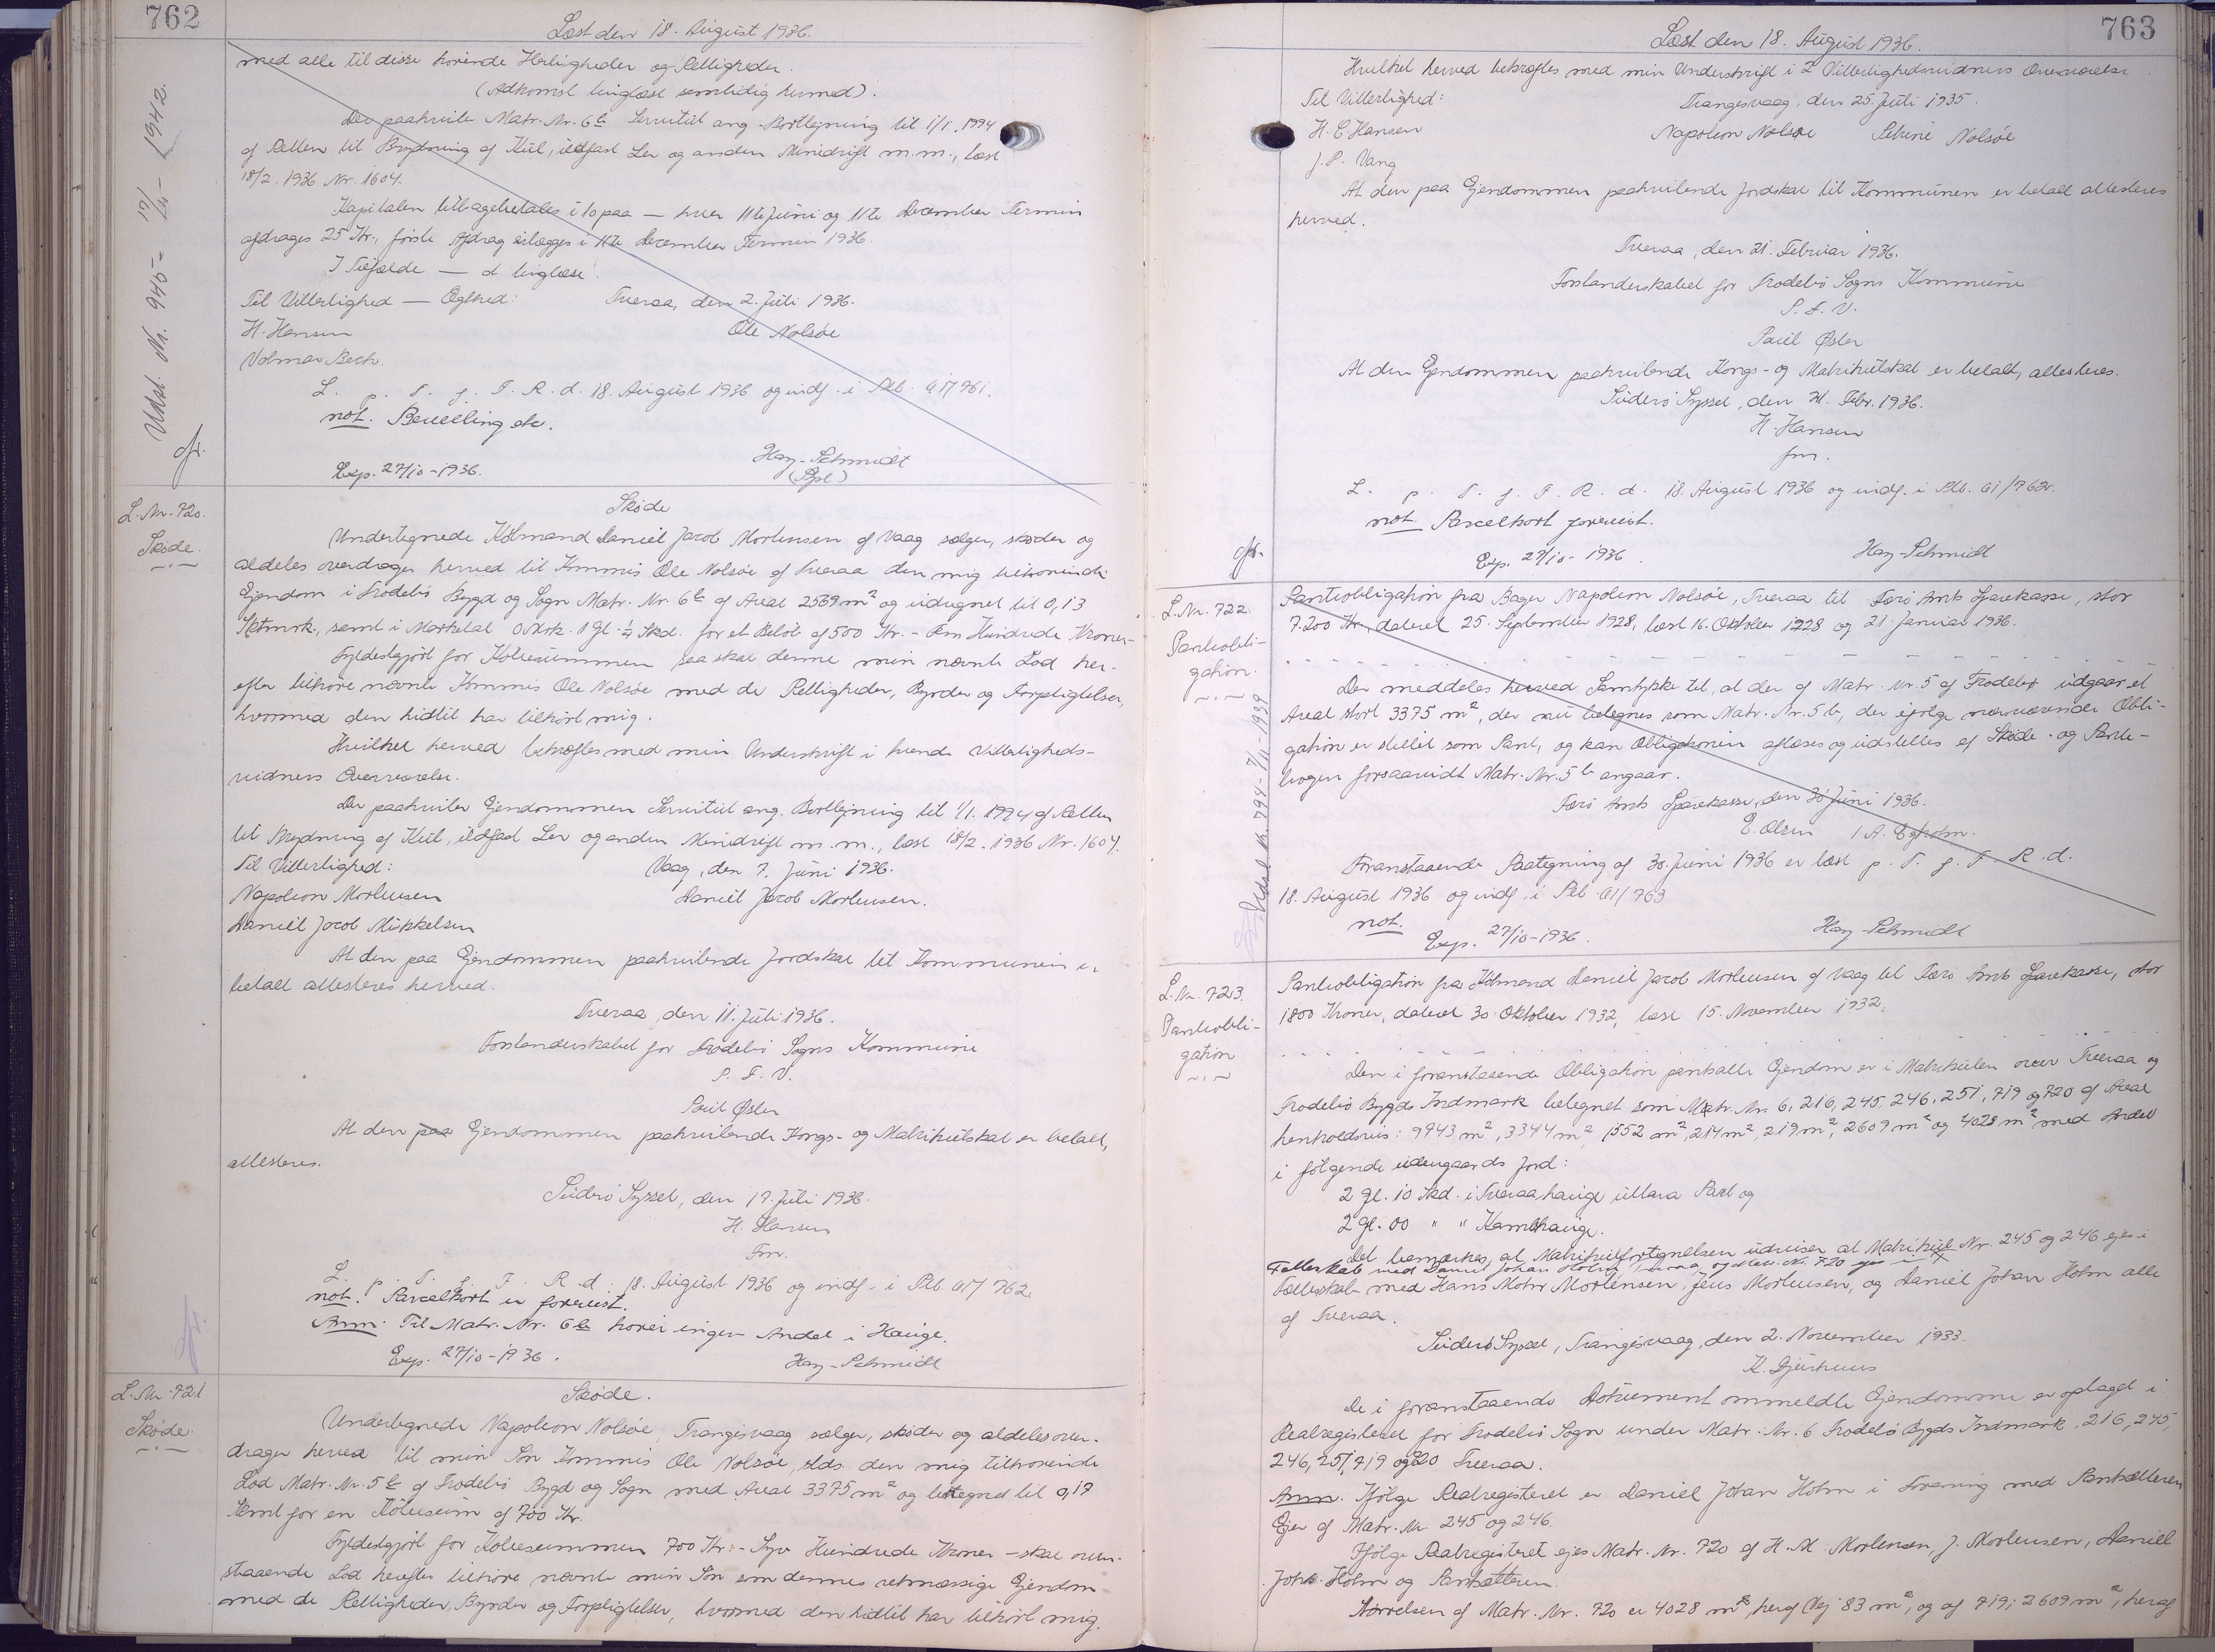 762
Læst den 18. August 1936.
med alle til disse hørende Herligheder og Rettigheder.
(Adkomst tinglæst samtidig hermed).
Der paahviler Matr. Nr. 6b Servitut ang. Bortlejning til 1/1. 1994
af Retten til Brydning af Kul, ildfast Ler og anden Minedrift m.m., læst
18/2. 1936 Nr. 1604.
Kapitalen tilbagebetales i 10 paa — hver 11te Juni og 11te December Termin
afdrages 25 Kr., første Afdrag erlægges i 11te December Termin 1936.
I Tilfælde — at tinglæse.
Til Vitterlighed — Ægthed: Tveraa, den 2. Juli 1936.
H. Hansen Ole Nolsøe
Volmar Bech.
L. p. T. f. F. R. d. 18. August 1936 og indf. i Ptb. 61/761.
not. Bevilling etc.
Hay-Schmidt
Exp. 27/10-1936.
Udsl. Nr. 945 - 1942.
L. Nr. 720.
Skøde.
Skøde
Undertegnede Købmand Daniel Jacob Mortensen af Vaag sælger, skøder og
aldeles overdrager herved til Kommis Ole Nolsøe af Tveraa den mig tilhørende
Ejendom i Frodebø Bygd og Sogn Matr. Nr. 6b af Areal 2569 m² og udregnet til 0,13
Sktmrk., samt i Marketal 0 Mrk. 1 Gl. Skd. for et Beløb af 500 Kr. - Fem Hundrede Kroner -
Fyldestgjort for Købesummen saa skal denne min nævnte Lod her-
efter tilhøre nævnte Kommis Ole Nolsøe med de Rettigheder, Byrder og Forpligtelser,
hvormed den hidtil har tilhørt mig.
Hvilket herved bekræftes med min Underskrift i tvende Vitterligheds-
vidners Overværelse.
Der paahviler Ejendommen Servitut ang. Bortlejning til 1/1. 1994 af Retten
til Brydning af Kul, ildfast Ler og anden Minedrift m.m., læst 18/2. 1936 Nr. 1604.
Til Vitterlighed: Vaag, den 7. Juni 1936.
Napoleon Mortensen Daniel Jacob Mortensen.
Daniel Jacob Mikkelsen
At den paa Ejendommen paahvilende Jordskat til Kommunen er
betalt attesteres herved.
Tveraa, den 11. Juli 1936.
Forstanderskabet for Frodebø Sogns Kommune
P. F. V.
Paul Øster
At den paa Ejendommen paahvilende Kongs- og Matrikulskat er betalt,
attesteres.
Suderø Syssel, den 17. Juli 1936.
H. Hansen
Fm.
L. p. T. f. F. R. d. 18. August 1936 og indf. i Ptb. 61/762.
not. Parcelkort er forevist.
Anm. Til Matr. Nr. 6b hører ingen Andel i Hauge.
Exp. 27/10-1936. Hay-Schmidt
L. Nr. 721
Skøde.
Skøde.
Undertegnede Napoleon Nolsøe, Trangisvaag sælger, skøder og aldeles over-
drager herved til min Søn Kommis Ole Nolsøe, stds. den mig tilhørende
Lod Matr. Nr. 5b af Frodebø Bygd og Sogn med Areal 3375 m² og betegnet til 0,17
Skml for en Købesum af 700 Kr.
Fyldestgjort for Købesummen 700 Kr. - Syv Hundrede Kroner - skal oven-
staaende Lod herefter tilhøre nævnte min Søn som dennes retmæssige Ejendom
med de Rettigheder, Byrder og Forpligtelser, hvormed den hidtil har tilhørt mig.
763
Læst den 18. August 1936.
Hvilket herved bekræftes med min Underskrift i 2 Vitterlighedsvidners Overværelse
Til Vitterlighed: Trangisvaag, den 25. Juli 1935.
H. C. Hansen Napoleon Nolsøe Nolsøe
J. P. Vang
At den paa Ejendommen paahvilende Jordskat til Kommunen er betalt attesteres
herved.
Tveraa, den 21. Februar 1936.
Forstanderskabet for Frodebø Sogns Kommune
P. F. V.
Paul Øster
At den Ejendommen paahvilende Kongs- og Matrikulskat er betalt, attesteres.
Suderø Syssel, den 21. Febr. 1936.
H. Hansen
fm.
L. p. T. f. F. R. d. 18. August 1936 og indf. i Ptb. 61/762.
not. Parcelkort forevist.
Exp. 27/10-1936. Hay-Schmidt
L. Nr. 722.
Pantobli-
gation.
Udsl. Nr. 794 - 7/11-1939
Pantobligation fra Bager Napoleon Nolsøe, Tveraa til Færø Amts Sparekasse, stor
7.200 Kr., dateret 25. September 1928, læst 16. Oktober 1928 og 21. Januar 1936.
Der meddeles herved Samtykke til, at der af Matr. Nr. 5 af Frodebø udgaar et
Areal stort 3375 m², der nu betegnes som Matr. Nr. 5b, der ifølge nærværende Obli-
gation er stillet som Pant, og kan Obligationen aflæses og udslettes af Skøde- og Pante-
bogen forsaavidt Matr. Nr. 5b angaar.
Færø Amts Sparekasse, den 30 Juni 1936.
E. Olsen / A. Egholm.
Foranstaaende Paategning af 30. Juni 1936 er læst p. T. f. F. R. d.
18. August 1936 og indf. i Ptb. 61/763
not.
Exp. 27/10-1936. Hay-Schmidt
L. Nr. 723.
Pantobli-
gation
Pantobligation fra Købmand Daniel Jacob Mortensen af Vaag til Færø Amts Sparekasse, stor
1800 Kroner, dateret 30. Oktober 1932, læst 15. November 1932.
Den i foranstaaende Obligation pantsatte Ejendom er i Matrikulen over Tveraa og
Frodebø Bygds Indmark betegnet som Matr. Nr. 6, 216, 245, 246, 251, 719 og 720 af Areal
henholdsvis: 9943 m², 3344 m², 1552 m², 214 m², 219 m², 2609 m² og 4028 m² med Andel
i følgende udengaards Jord:
2 Gl. 10 Skd. i Tveraahauge uttara Part og
2 Gl. 00 " " Kambhauge.
Det bemærkes, at Matrikulfortegnelsen udviser at Matrikul Nr. 245 og 246 ejes i
Fælleskab med Daniel Johan Holm, Tveraa og Matr. Nr. 720 ejes i
Fælleskab med Hans Mohr Mortensen, Jens Mortensen, og Daniel Johan Holm alle
af Tveraa.
Suderø Syssel, Trangisvaag, den 2. November 1933.
K. Djurhuus
De i foranstaaende Dokument ommeldte Ejendomme er optaget i
Realregisteret for Frodebø Sogn under Matr. Nr. 6 Frodebø Bygds Indmark, 216, 245,
246, 251, 719 og 720 Tveraa.
Anm. Ifølge Realregisteret er Daniel Johan Holm i Forening med Pantsætteren
Ejer af Matr. Nr. 245 og 246.
Ifølge Realregisteret ejes Matr. Nr. 720 af H. M. Mortensen, J. Mortensen, Daniel
Johs. Holm og Pantsætteren.
Størrelsen af Matr. Nr. 720 er 4028 m², heraf Vej 83 m², og af 719; 2609 m², heraf